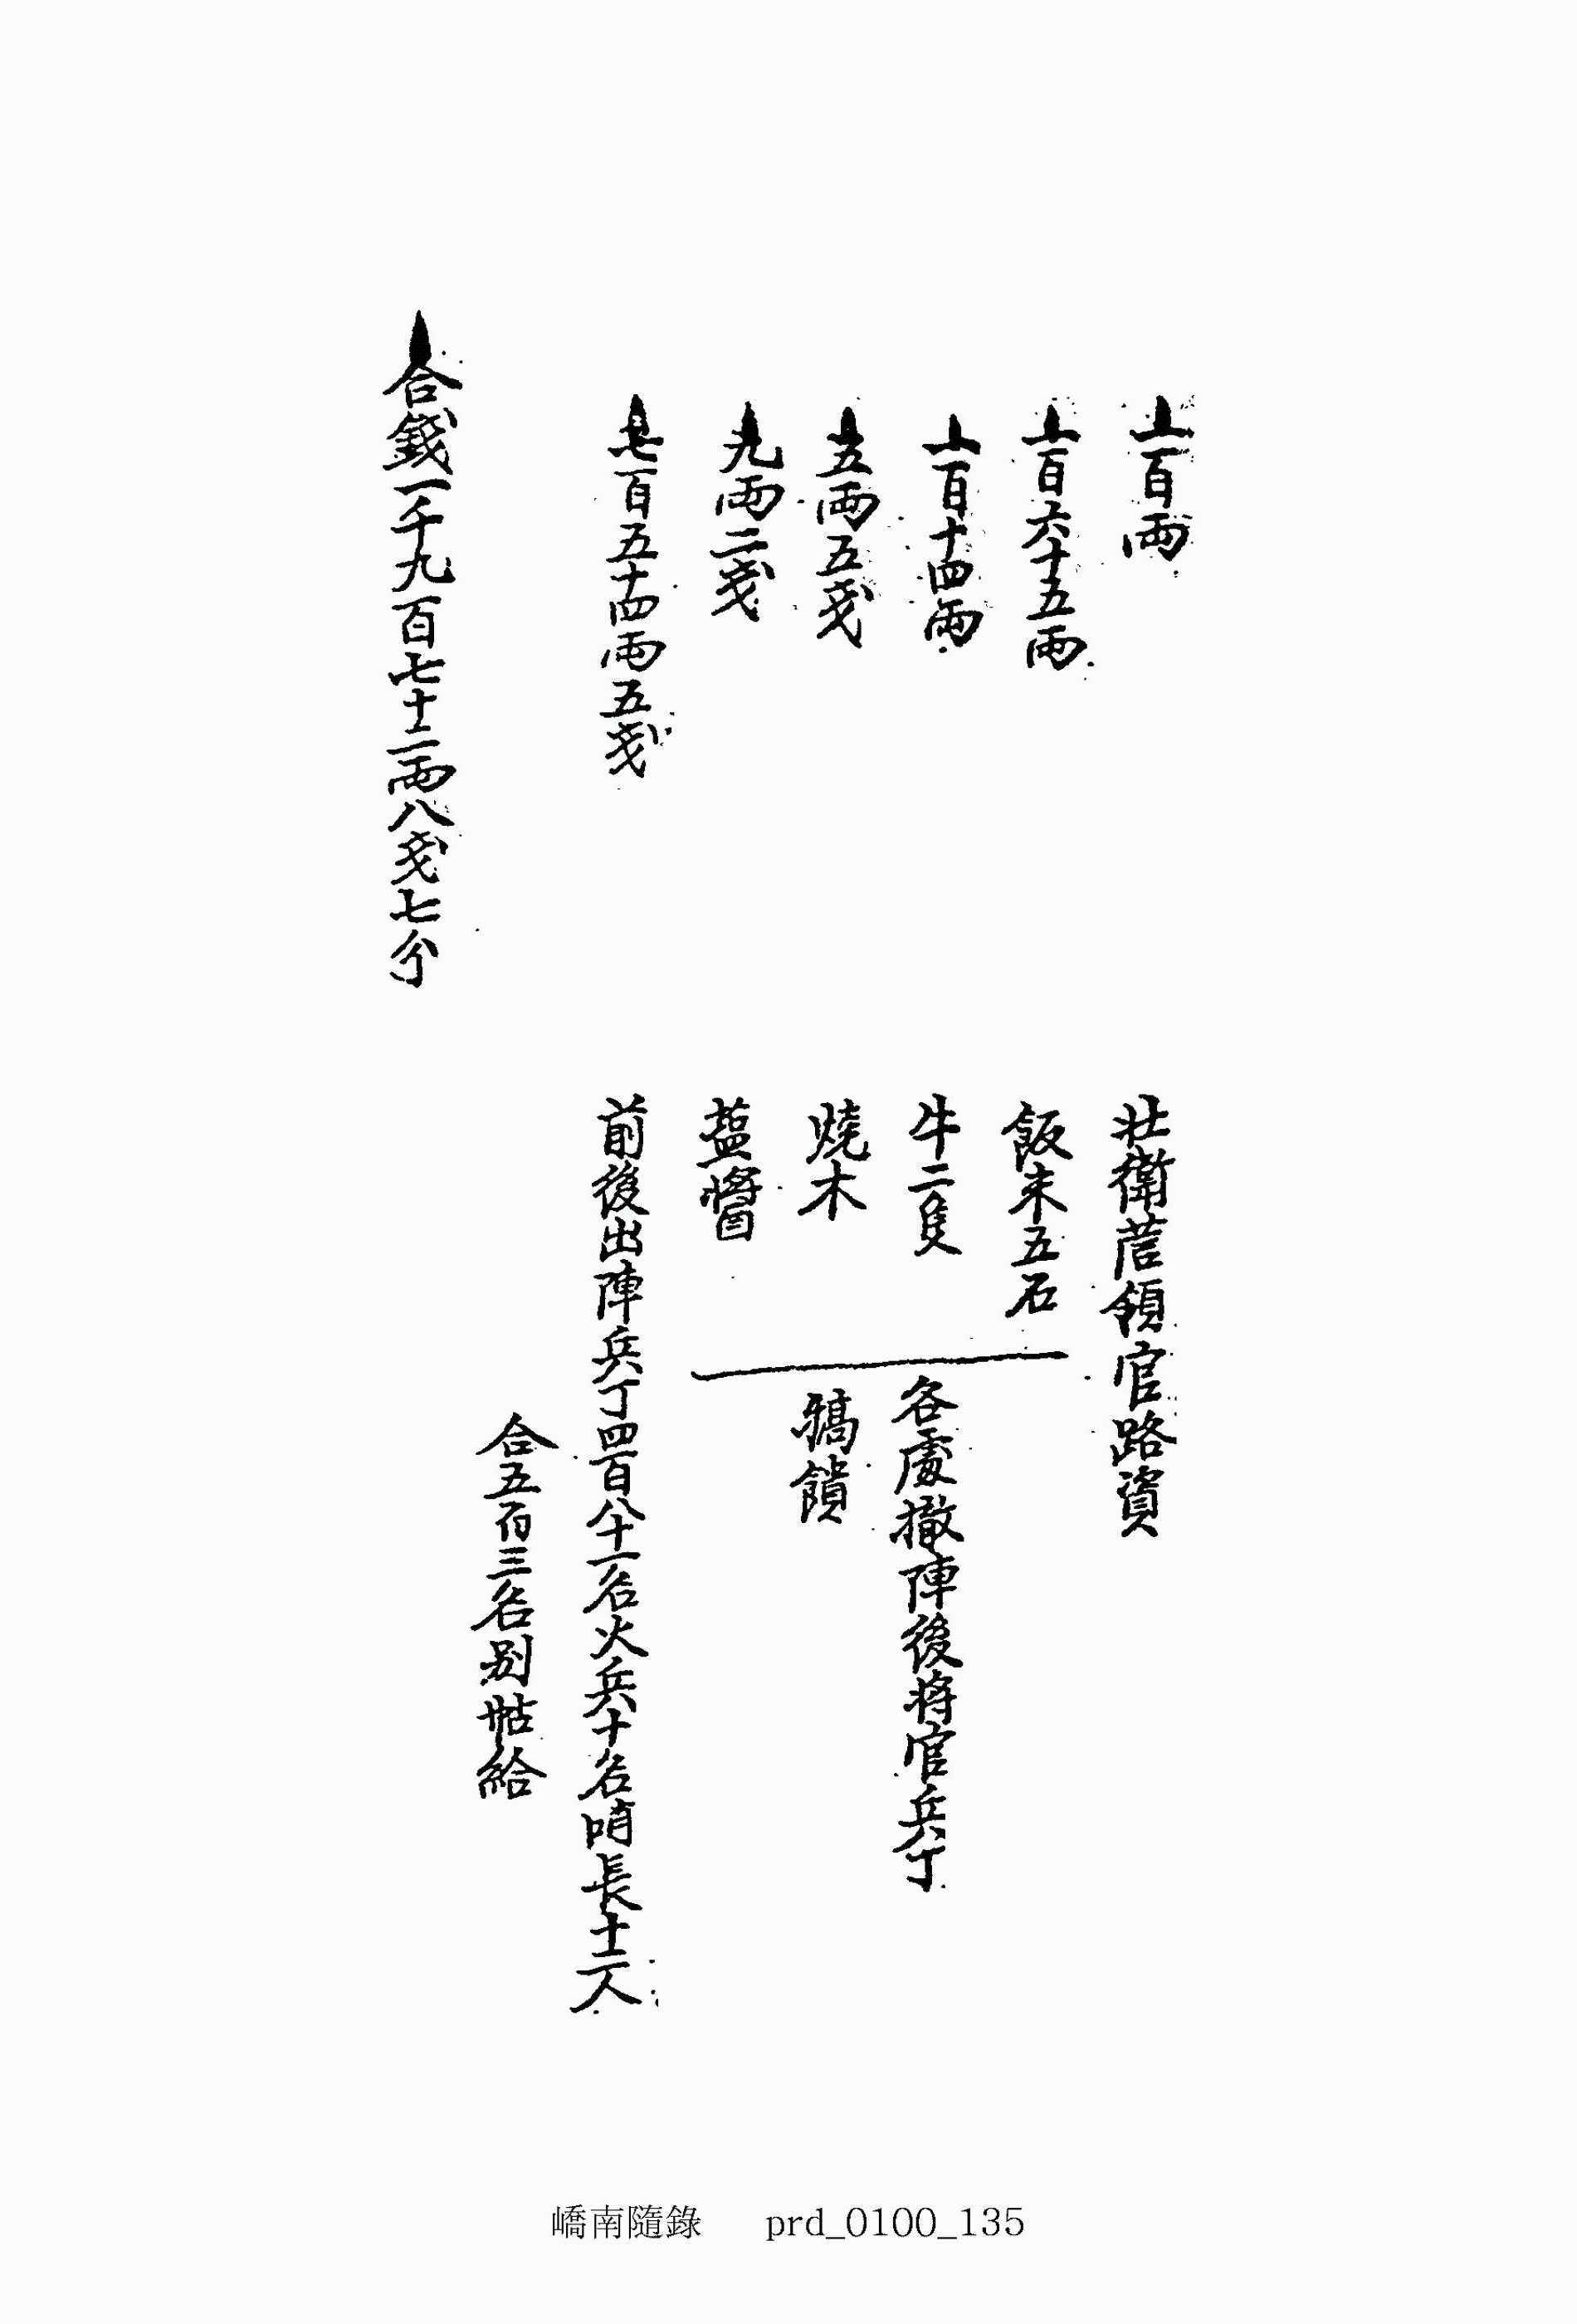 一百兩 壯衛营領官路資
一百六十五兩 飯米五石
一百十四兩 牛二隻 各處撤陣後将官兵丁
五兩五戔 燒木 犒饋
九兩二戔 塩醬
七百五十四兩五戔 前後出陣兵丁四百八十一名火兵十名哨長十二人
合五百三名別帖給
合錢一千九百七十二兩八戔七分
嶠南隨錄 prd_0100_135